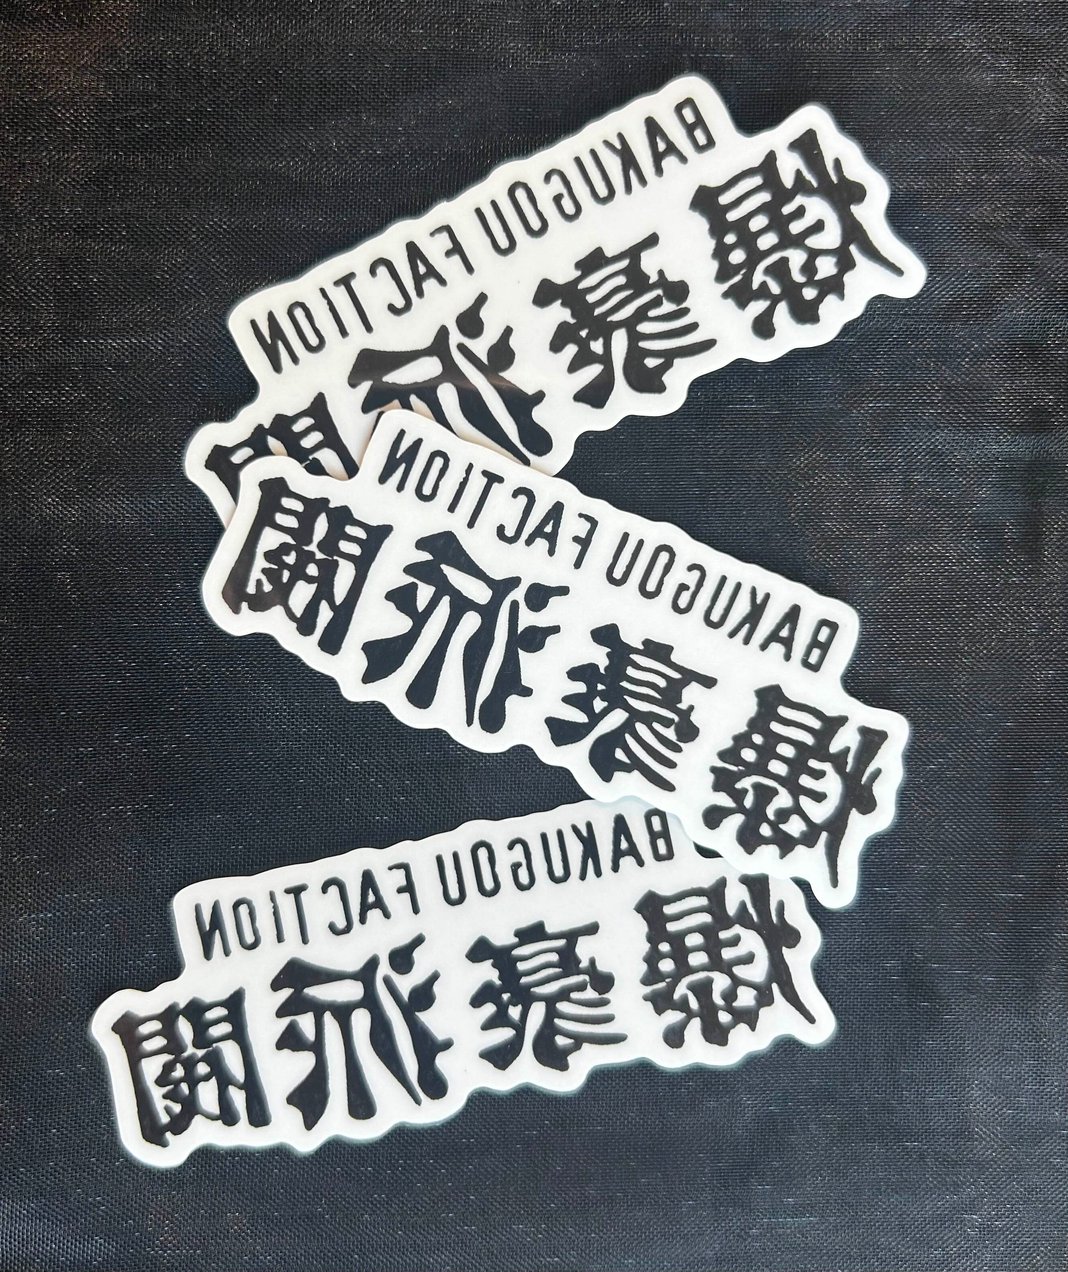 BAKUGOU FACTION
爆豪派閥
BAKUGOU FACTION
爆豪派閥
BAKUGOU FACTION
爆豪派閥